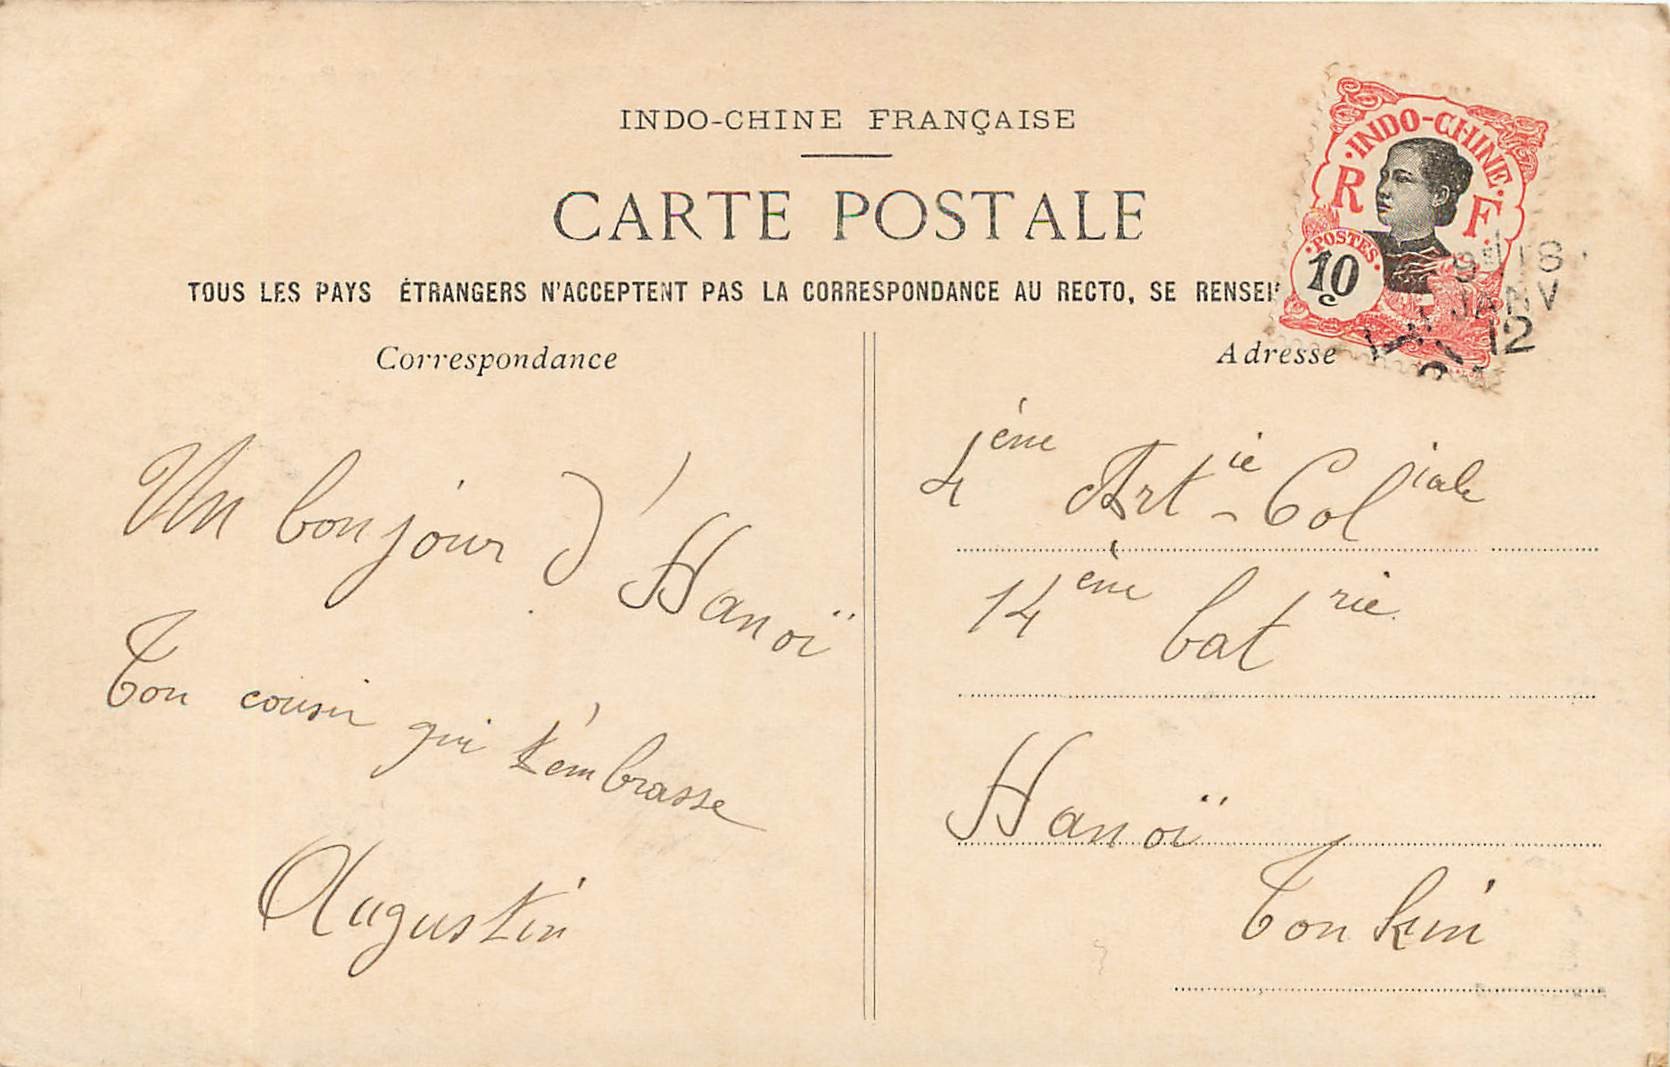 INDO-CHINE FRANÇAISE
CARTE POSTALE
TOUS LES PAYS ÉTRANGERS N'ACCEPTENT PAS LA CORRESPONDANCE AU RECTO, SE RENSEI
INDO-CHINE
R F.
POSTES
10 c
18
JANV
12
Correspondance
Un bonjour d'Hanoï
Ton cousin qui t'embrasse
Augustin
Adresse
4ème Artie-Coliale
14ème batrie
Hanoï
Tonkin